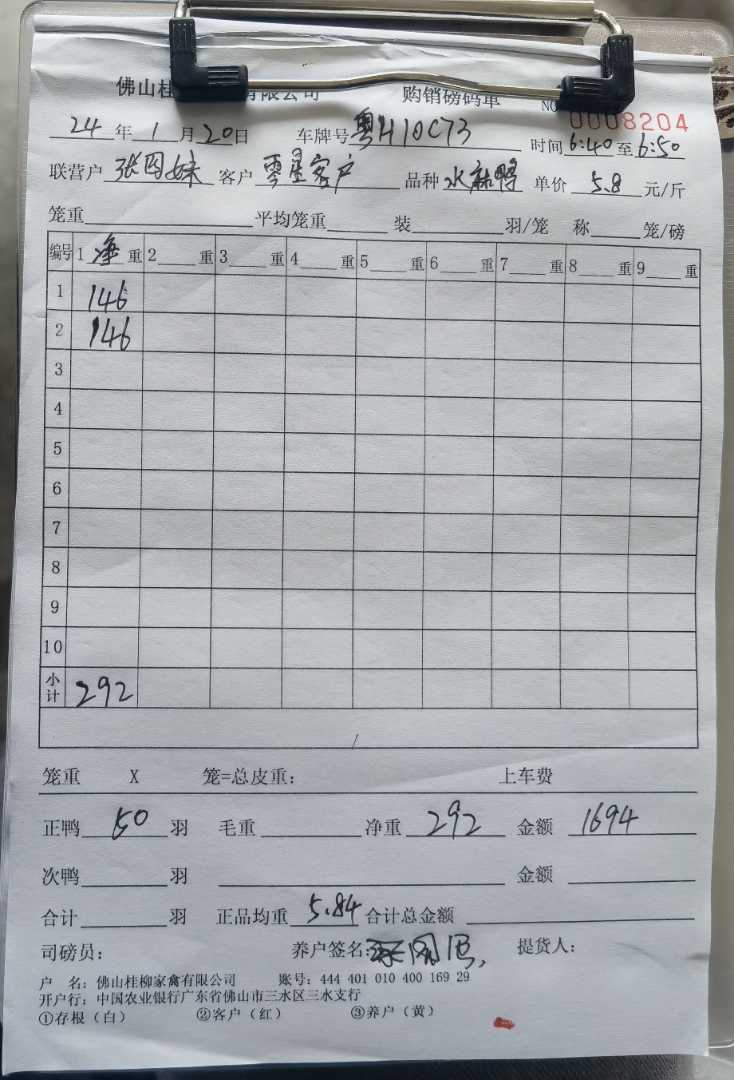 佛山桂 有限公司 购销磅码单 NO 0008204
24年1月20日 车牌号粤H10C73 时间6:40至6:50
联营户张囯妹 客户零星客户 品种水麻鸭 单价5.8元/斤
笼重 平均笼重 装 羽/笼 称 笼/磅
编号 1净重 2 重 3 重 4 重 5 重 6 重 7 重 8 重 9 重
1 146
2 146
3
4
5
6
7
8
9
10
小计 292
/
笼重 X 笼=总皮重: 上车费
正鸭50羽 毛重 净重292 金额1694
次鸭 羽 金额
合计 羽 正品均重5.84 合计总金额
司磅员: 养户签名: 提货人:
户 名: 佛山桂柳家禽有限公司 账号: 444 401 010 400 169 29
开户行: 中国农业银行广东省佛山市三水区三水支行
①存根（白） ②客户（红） ③养户（黄）